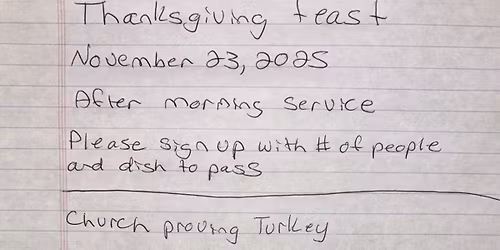 Thanksgiving feast
November 23, 2025
After morning service
Please sign up with # of people
and dish to pass
Church proving Turkey